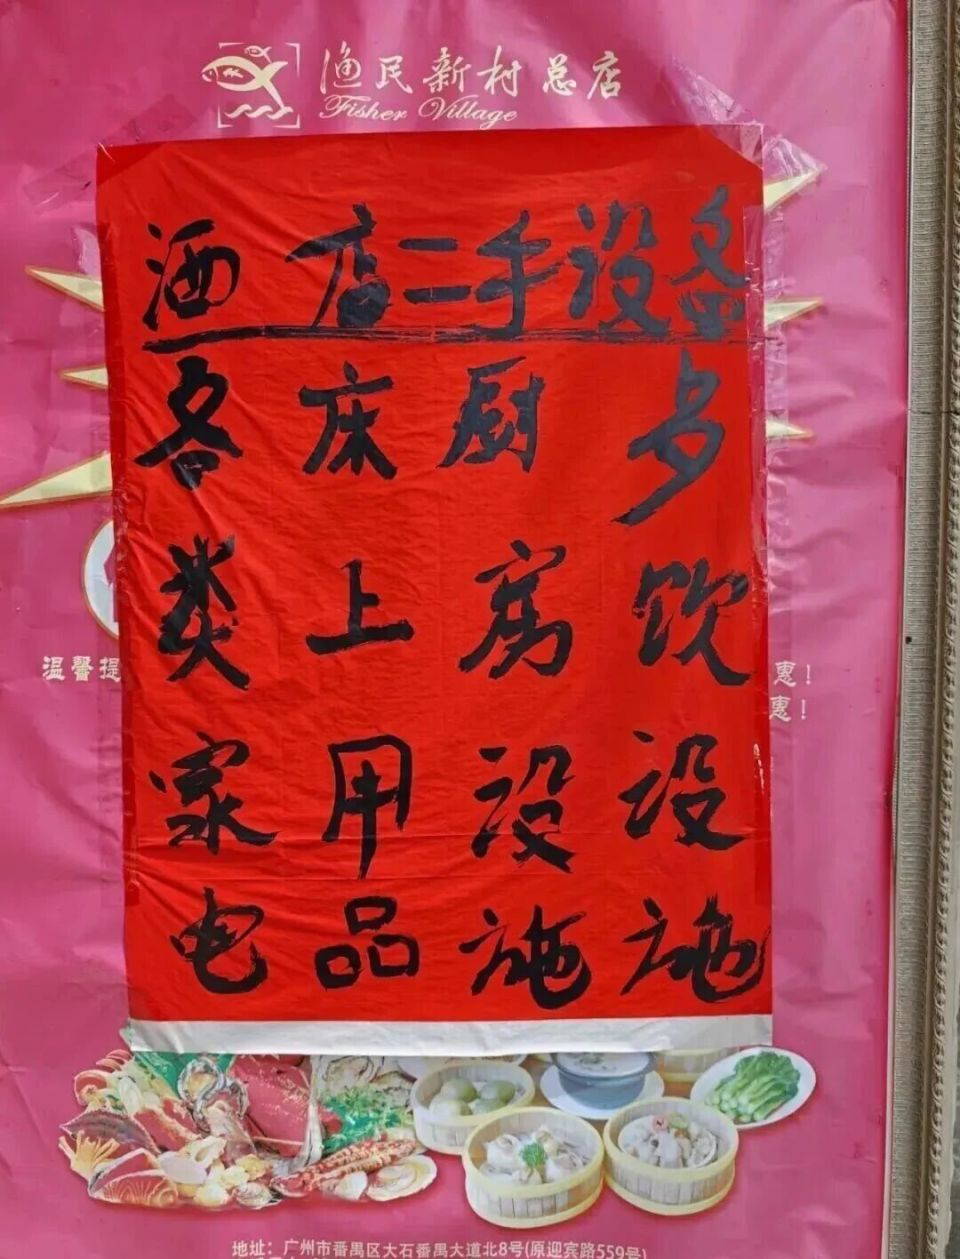 渔民新村总店
Fisher Village
酒店二手设备
各类家电
床上用品
厨房设施
歺饮设施
温馨提
惠！
惠！
地址：广州市番禺区大石番禺大道北8号(原迎宾路559号)